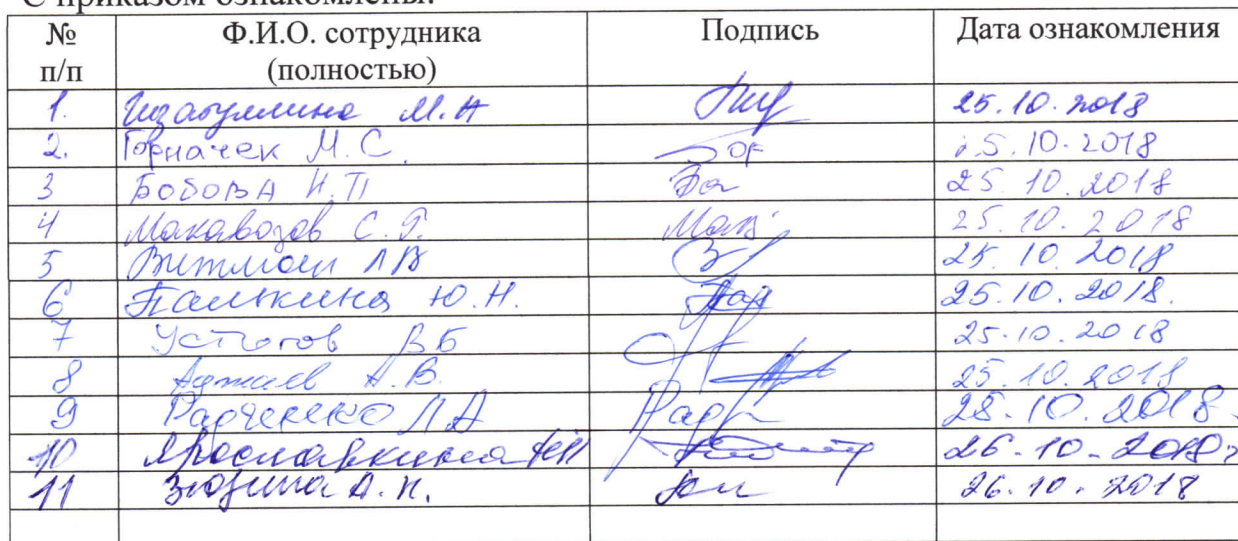 С приказом ознакомлены:
№ п/п Ф.И.О. сотрудника (полностью) Подпись Дата ознакомления
1. М.А 25.10.2018
2. Горначек М.С. 25.10.2018
3 Бобова Н.П 25.10.2018
4 Макавозов С.Г. 25.10.2018
5 Витман ЛВ 25.10.2018
6 Палькина Ю.Н. 25.10.2018.
7 Устюгов ВБ 25.10.2018
8 А.В. 25.10.2018
9 Радченко Л А 25.10.2018.
10 Ярославкина 26.10.2018г
11 Зюзина А.Н. 26.10.2018